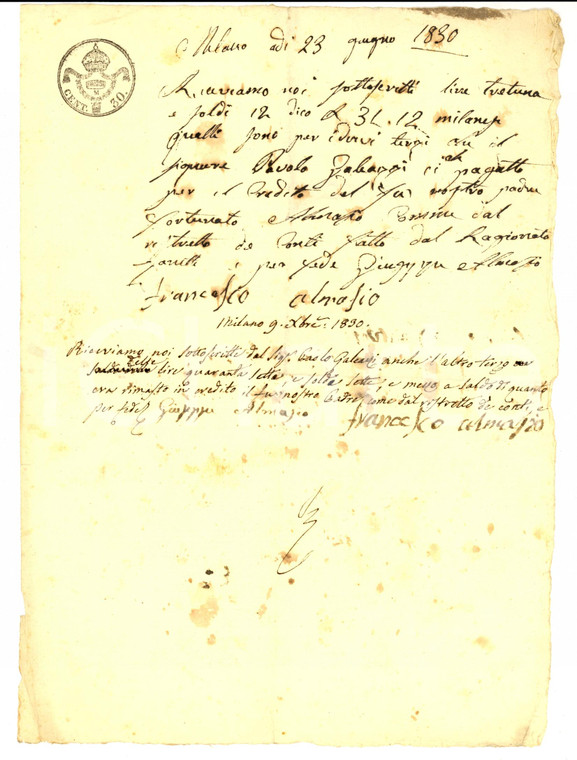 Milano adi 23 giugno 1830
CENT. 30.
Riceviamo noi sottoscritti lire tretuna
e soldi 12 dico L 31.12 milanesi
quelli sono per i dovi terzi che il
signore Pavolo Galeazzi ci ah pagatto
per il credito del fu nostro padre
Fortunato Almasio come dal
ristretto de Conti fatto dal Ragioniato
per fede Giuseppe Almasio
francesco almasio
Milano 9. Xbre. 1830.
Riceviamo noi sottoscritti dal Sigr. Paolo Galeazzi anche l'altro terzo
lire quaranta sette, e soldi sette, e mezzo a saldo di quanto
era rimasto in credito il fu nostro Padre come dal ristretto de conti, e
per fede Giuseppe Almasio francesco almasio